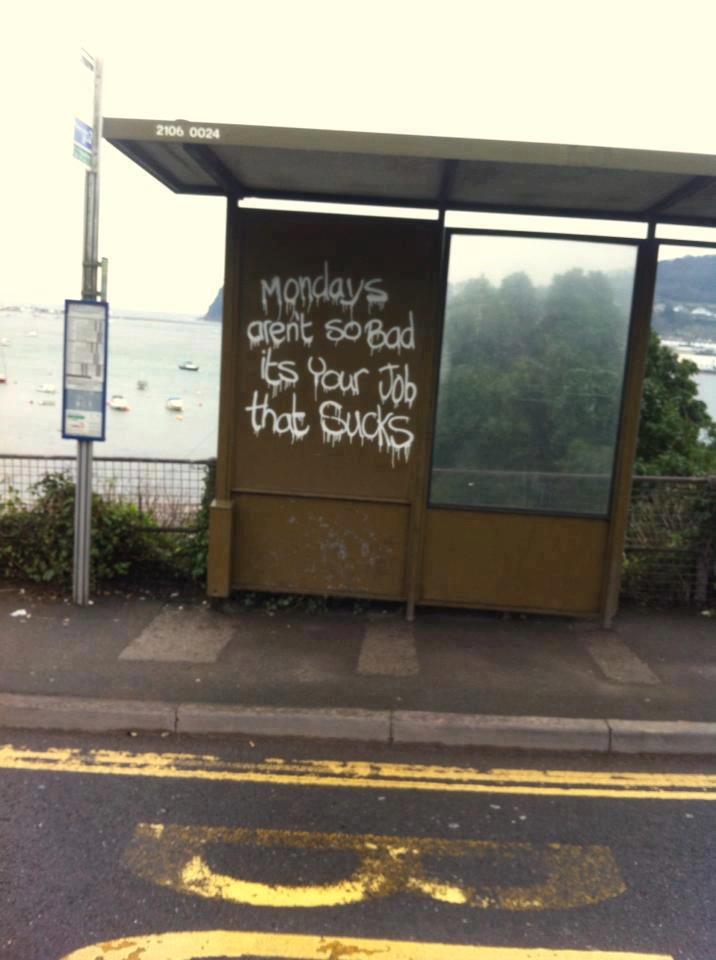 2106 0024
Mondays
aren't so Bad
it's Your Job
that Sucks
B